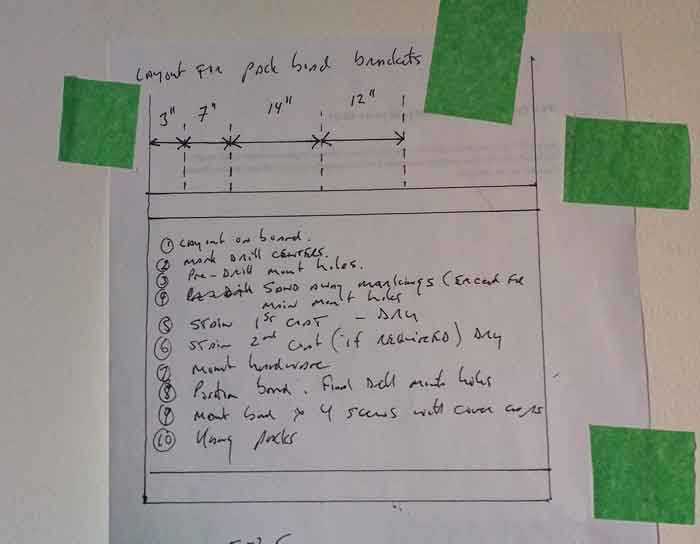 Layout for pack board brackets
3" 7" 14" 12"
① Layout on board.
② Mark Drill CENTERS.
③ Pre-Drill mount holes.
④ Sand away markings (Except for
main mount holes
⑤ Stain 1st coat - Dry
⑥ Stain 2nd coat (if REQUIRED) Dry
⑦ Mount hardware
⑧ Position board. Final Drill mount holes
⑨ Mount board 4 screws with cover caps
⑩ Hang packs